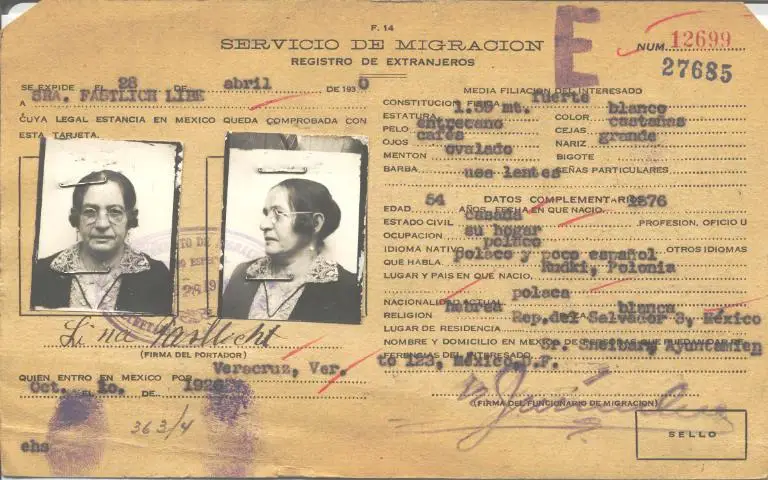 F. 14
SERVICIO DE MIGRACION
REGISTRO DE EXTRANJEROS
E
NUM. 12699
27685
SE EXPIDE EL 28 DE abril DE 1930
A SRA. FASTLICH LIBE
CUYA LEGAL ESTANCIA EN MEXICO QUEDA COMPROBADA CON
ESTA TARJETA.
Lina Fastlicht
(FIRMA DEL PORTADOR)
QUIEN ENTRO EN MEXICO POR Veracruz, Ver.
Oct. EL 1o. DE 1928
363/4
ehs
MEDIA FILIACION DEL INTERESADO
CONSTITUCION FISICA fuerte
ESTATURA 1.50 mt. COLOR blanco
PELO entrecano CEJAS castañas
OJOS cafés NARIZ grande
MENTON ovalado BIGOTE
BARBA usa lentes SEÑAS PARTICULARES
DATOS COMPLEMENTARIOS
EDAD 54 AÑOS. FECHA EN QUE NACIO. 1876
ESTADO CIVIL casada .PROFESION, OFICIO U
OCUPACION su hogar
IDIOMA NATIVO polaco OTROS IDIOMAS
QUE HABLA. polaco y poco español
LUGAR Y PAIS EN QUE NACIO. Rudki, Polonia
NACIONALIDAD ACTUAL polaca
RELIGION hebrea RAZA blanca
LUGAR DE RESIDENCIA Rep. del Salvador 3, México
NOMBRE Y DOMICILIO EN MEXICO DE PERSONAS QUE PUEDAN DAR RE-
FERENCIAS DEL INTERESADO. Sr. Sheibar, Ayuntamien
to 123, México, D.F.
(FIRMA DEL FUNCIONARIO DE MIGRACION)
SELLO